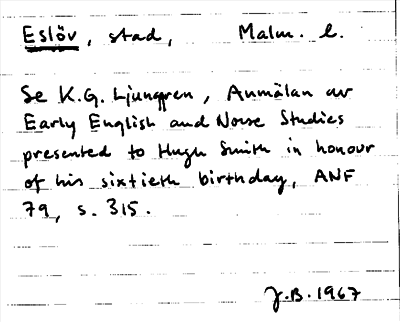 Eslöv, stad, Malm. l.
Se K.G. Ljunggren, Anmälan av
Early English and Norse Studies
presented to Hugh Smith in honour
of his sixtieth birthday, ANF
79, s. 315.
J.B. 1967